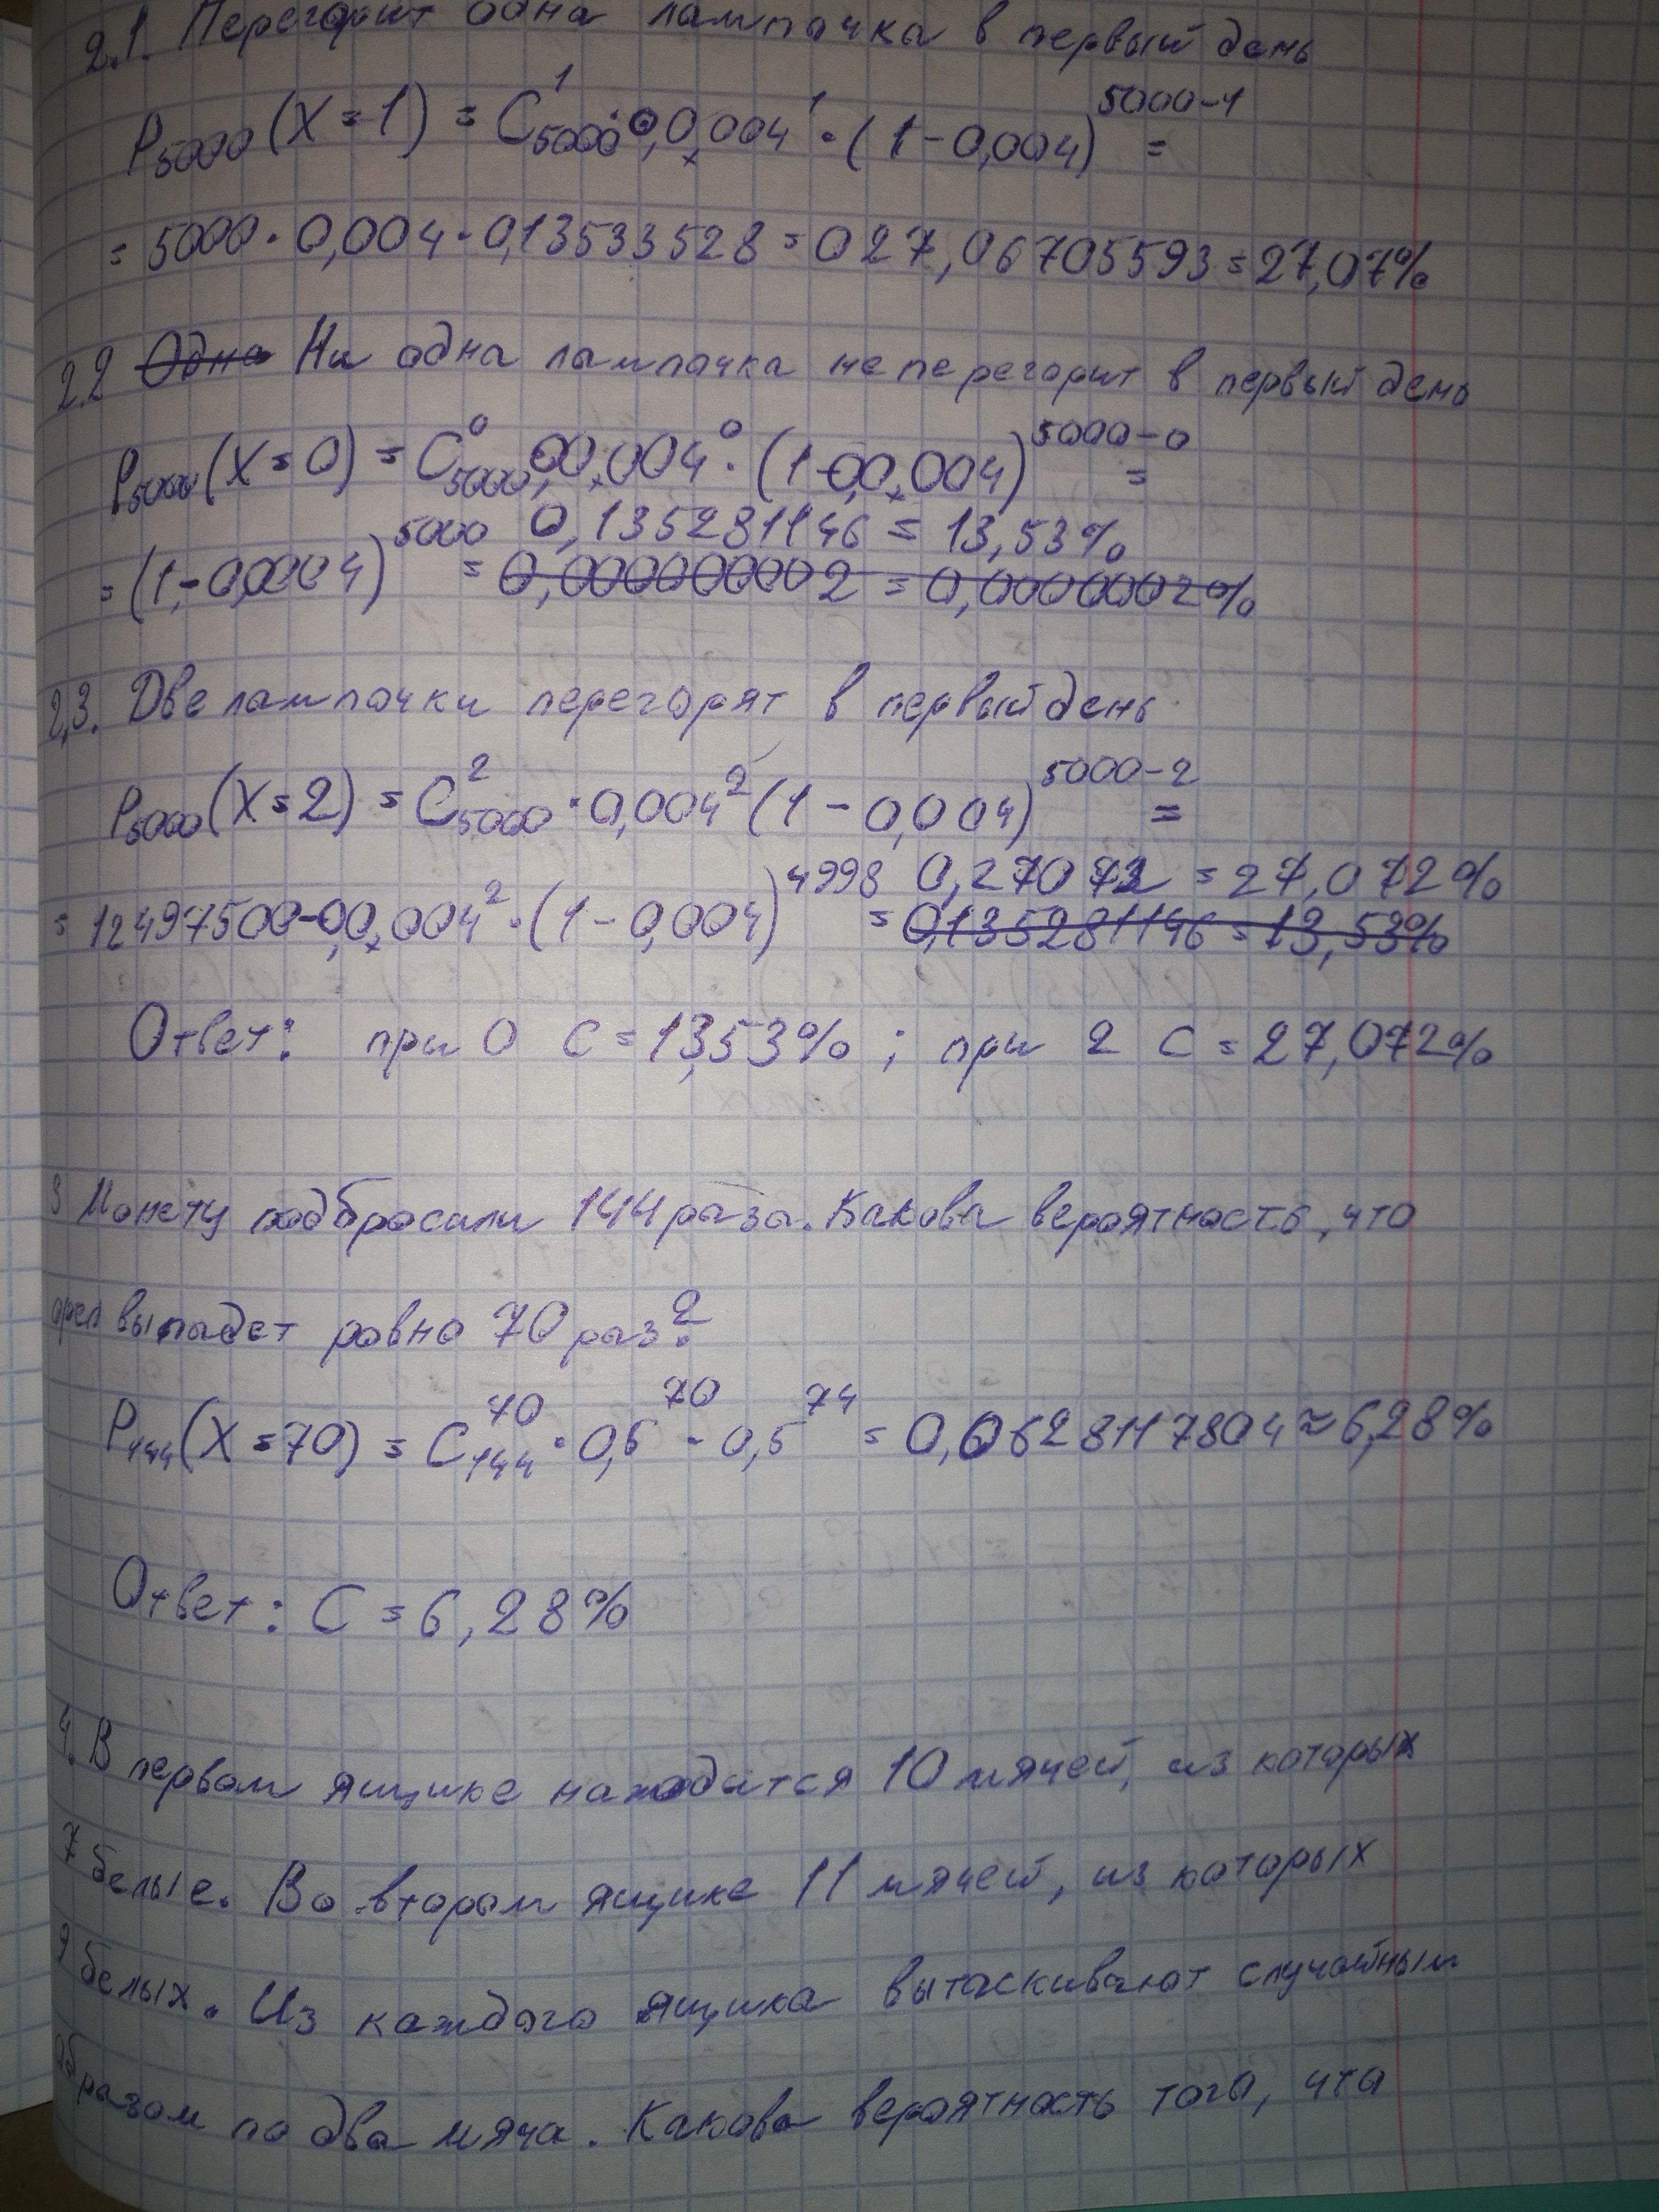 2.1. Перегорит одна лампочка в первый день
P₅₀₀₀(X=1) = C¹₅₀₀₀ · 0,004¹ · (1-0,004)⁵⁰⁰⁰⁻¹ =
= 5000 · 0,004 · 0,13533528 = 027,06705593 = 27,07%
2.2 Одна Ни одна лампочка не перегорит в первый день
P₅₀₀₀(X=0) = C⁰₅₀₀₀ 00,004⁰ · (1-00,004)⁵⁰⁰⁰⁻⁰ =
0,135281146 = 13,53%
= (1-0,0004)⁵⁰⁰⁰ = 0,0000000002 = 0,00000002%
2,3. Две лампочки перегорят в первый день
P₅₀₀₀(X=2) = C²₅₀₀₀ · 0,004² (1-0,004)⁵⁰⁰⁰⁻² =
0,27072 = 27,072%
= 12497500-00,004² · (1-0,004)⁴⁹⁹⁸ = 0,135281146 = 13,53%
Ответ: при 0 C = 13,53% ; при 2 C = 27,072%
3 Монету подбросили 144 раза. Какова вероятность, что
орел выпадет ровно 70 раз?
P₁₄₄(X=70) = C⁷⁰₁₄₄ · 0,5⁷⁰ · 0,5⁷⁴ = 0,0628117804 ≈ 6,28%
Ответ: C = 6,28%
4. В первом ящике находится 10 мячей, из которых
7 белые. Во втором ящике 11 мячей, из которых
9 белых. Из каждого ящика вытаскивают случайным
образом по два мяча. Какова вероятность того, что